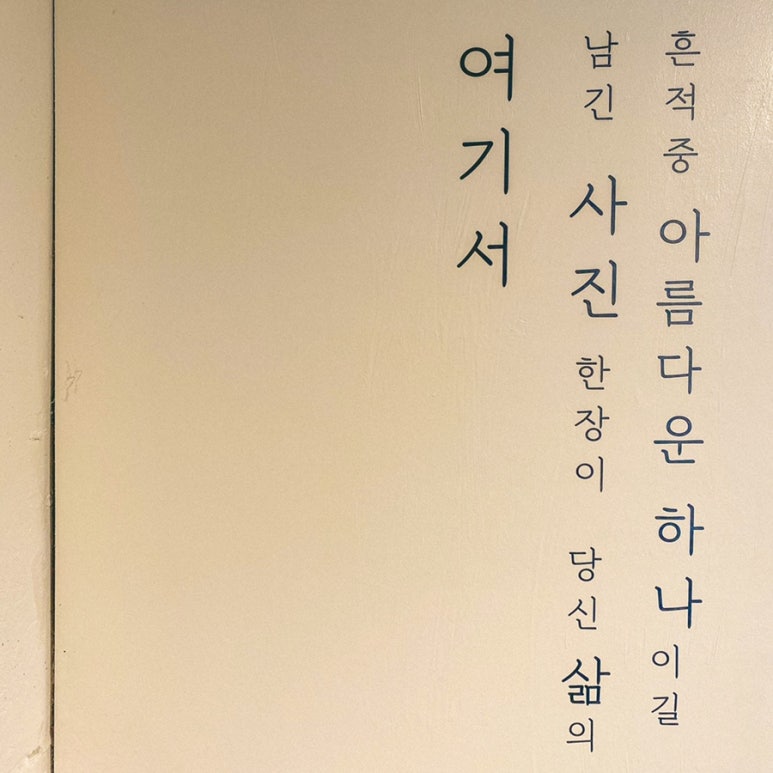 여기서
남긴 사진 한장이 당신 삶의
흔적중 아름다운 하나이길